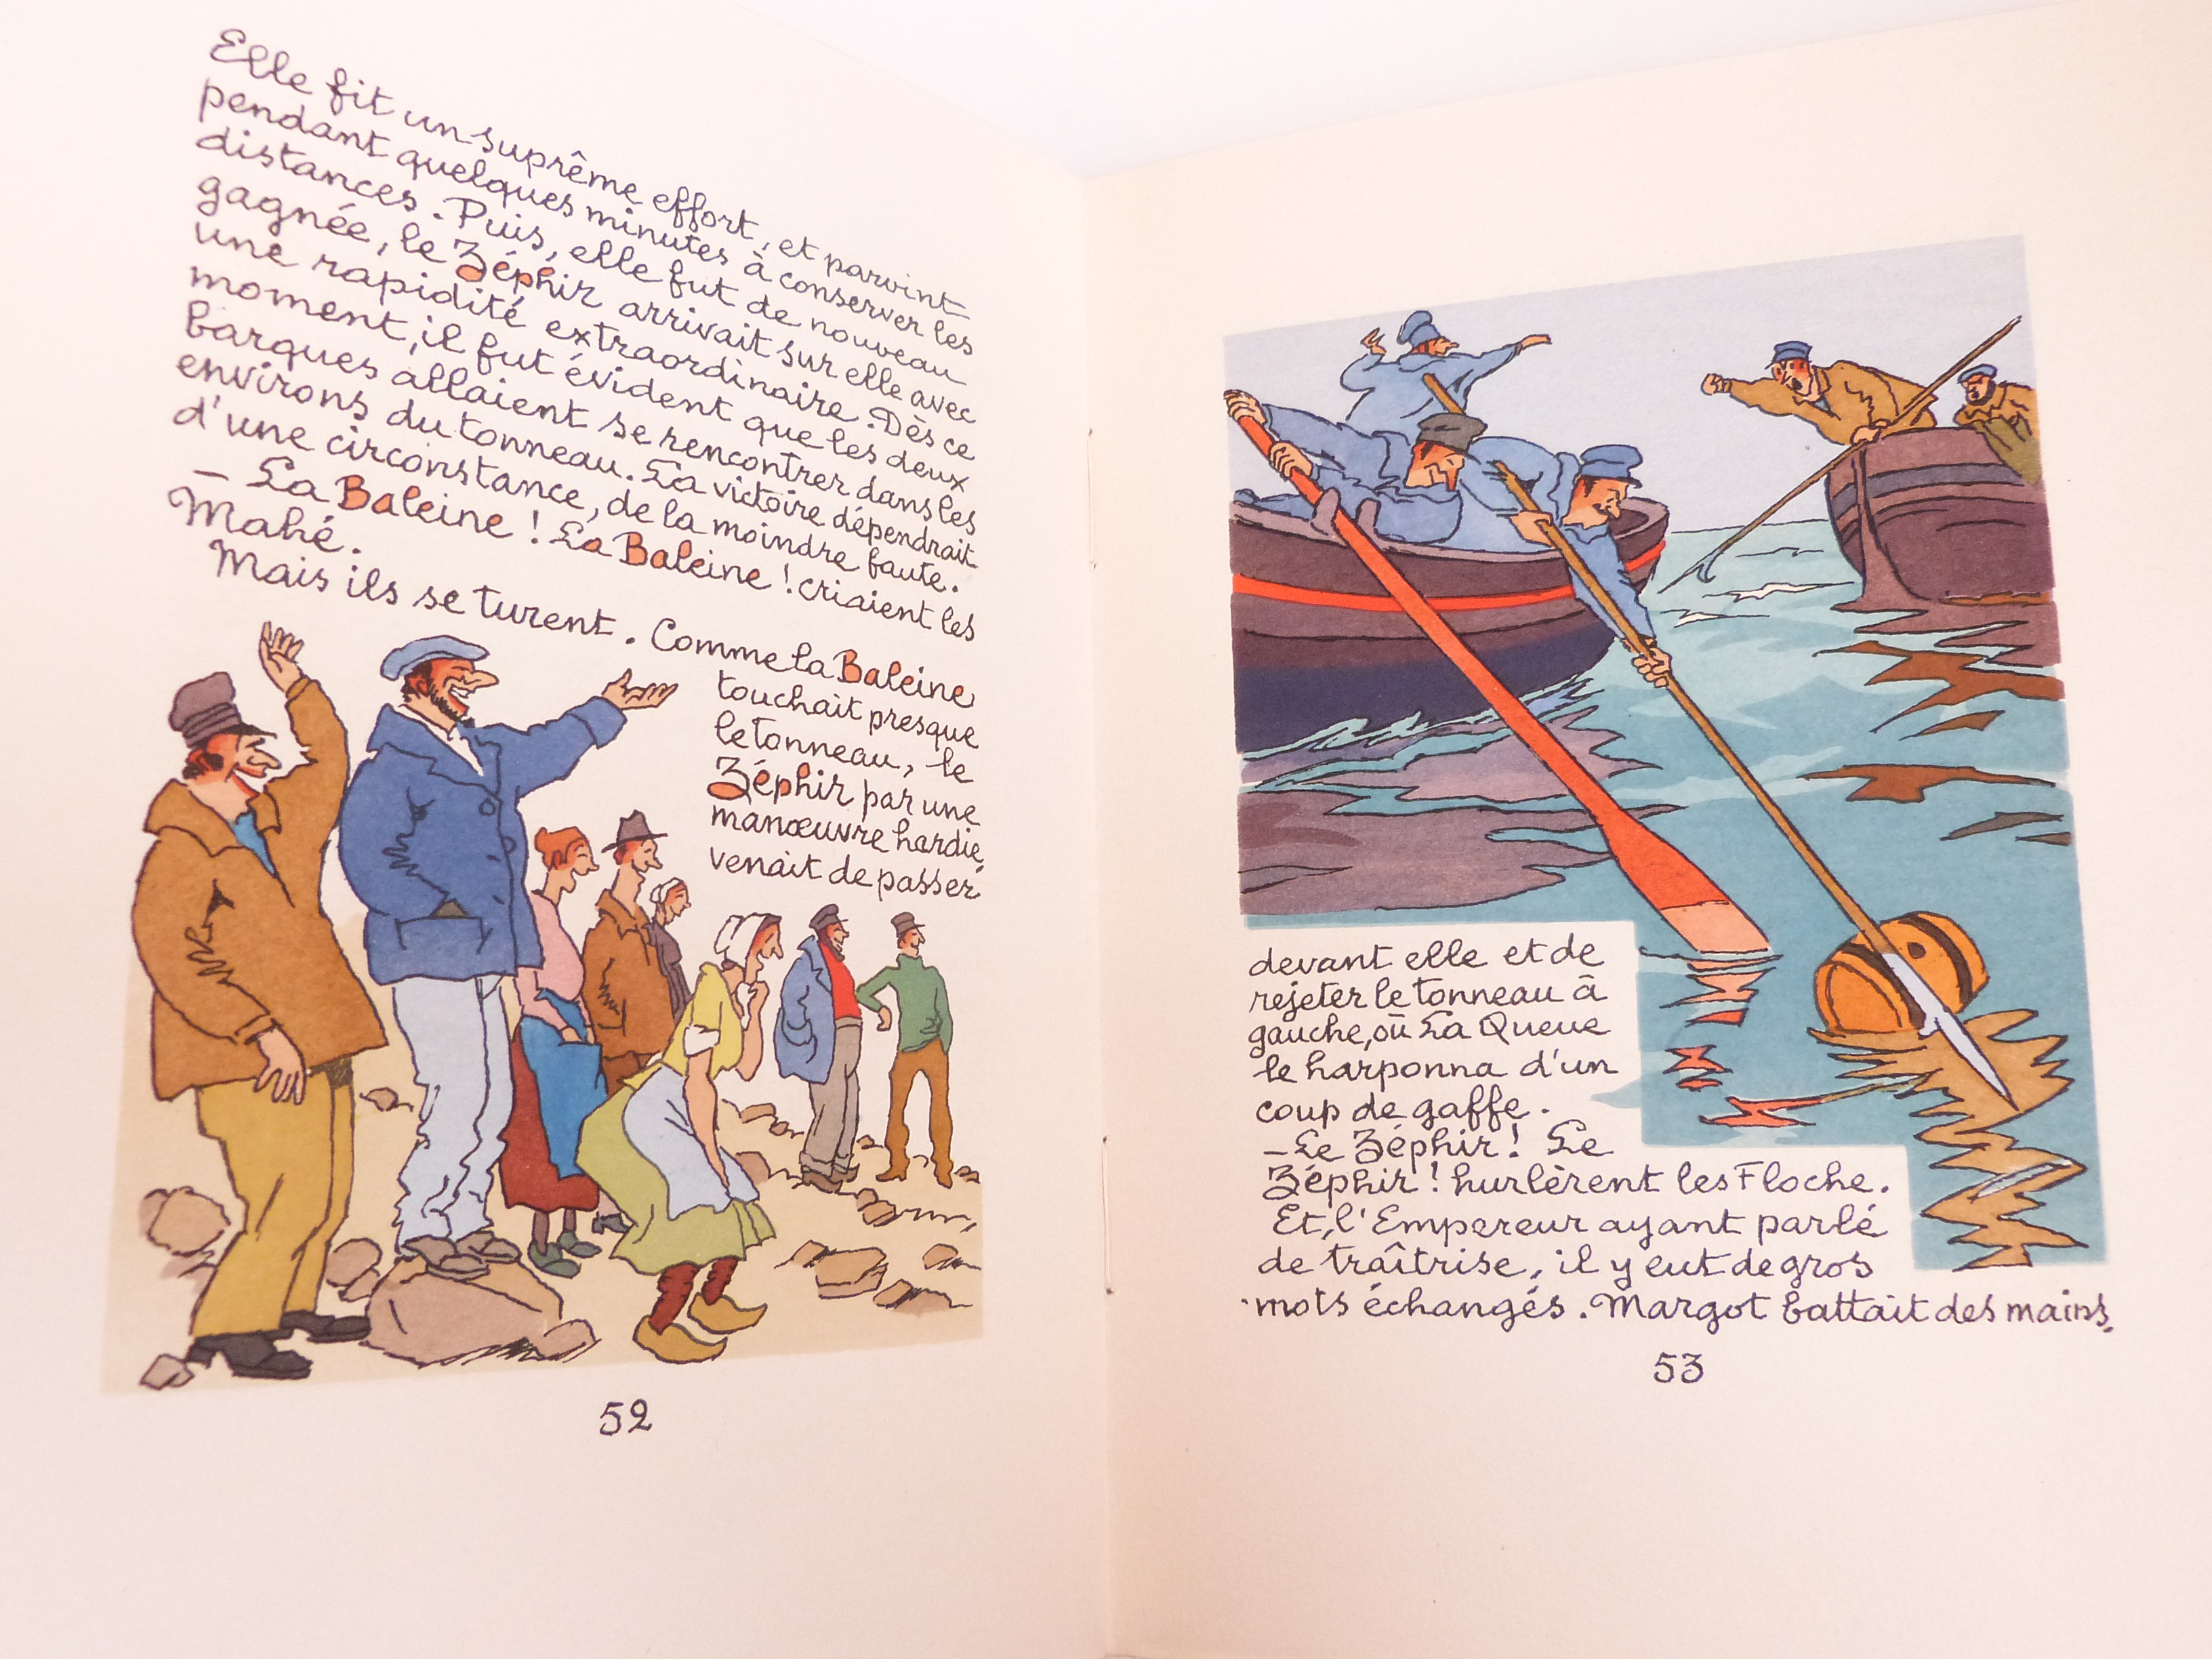 Elle fit un suprême effort, et parvint
pendant quelques minutes à conserver les
distances. Puis, elle fut de nouveau
gagnée, le Zéphir arrivait sur elle avec
une rapidité extraordinaire. Dès ce
moment, il fut évident que les deux
barques allaient se rencontrer dans les
environs du tonneau. La victoire dépendrait
d'une circonstance, de la moindre faute.
— La Baleine ! La Baleine ! criaient les
Mahé.
Mais ils se turent. Comme la Baleine
touchait presque
le tonneau, le
Zéphir par une
manœuvre hardie,
venait de passer
52
devant elle et de
rejeter le tonneau à
gauche, où La Queue
le harponna d'un
coup de gaffe.
— Le Zéphir ! Le
Zéphir ! hurlèrent les Floche.
Et, l'Empereur ayant parlé
de traîtrise, il y eut de gros
mots échangés. Margot battait des mains.
53